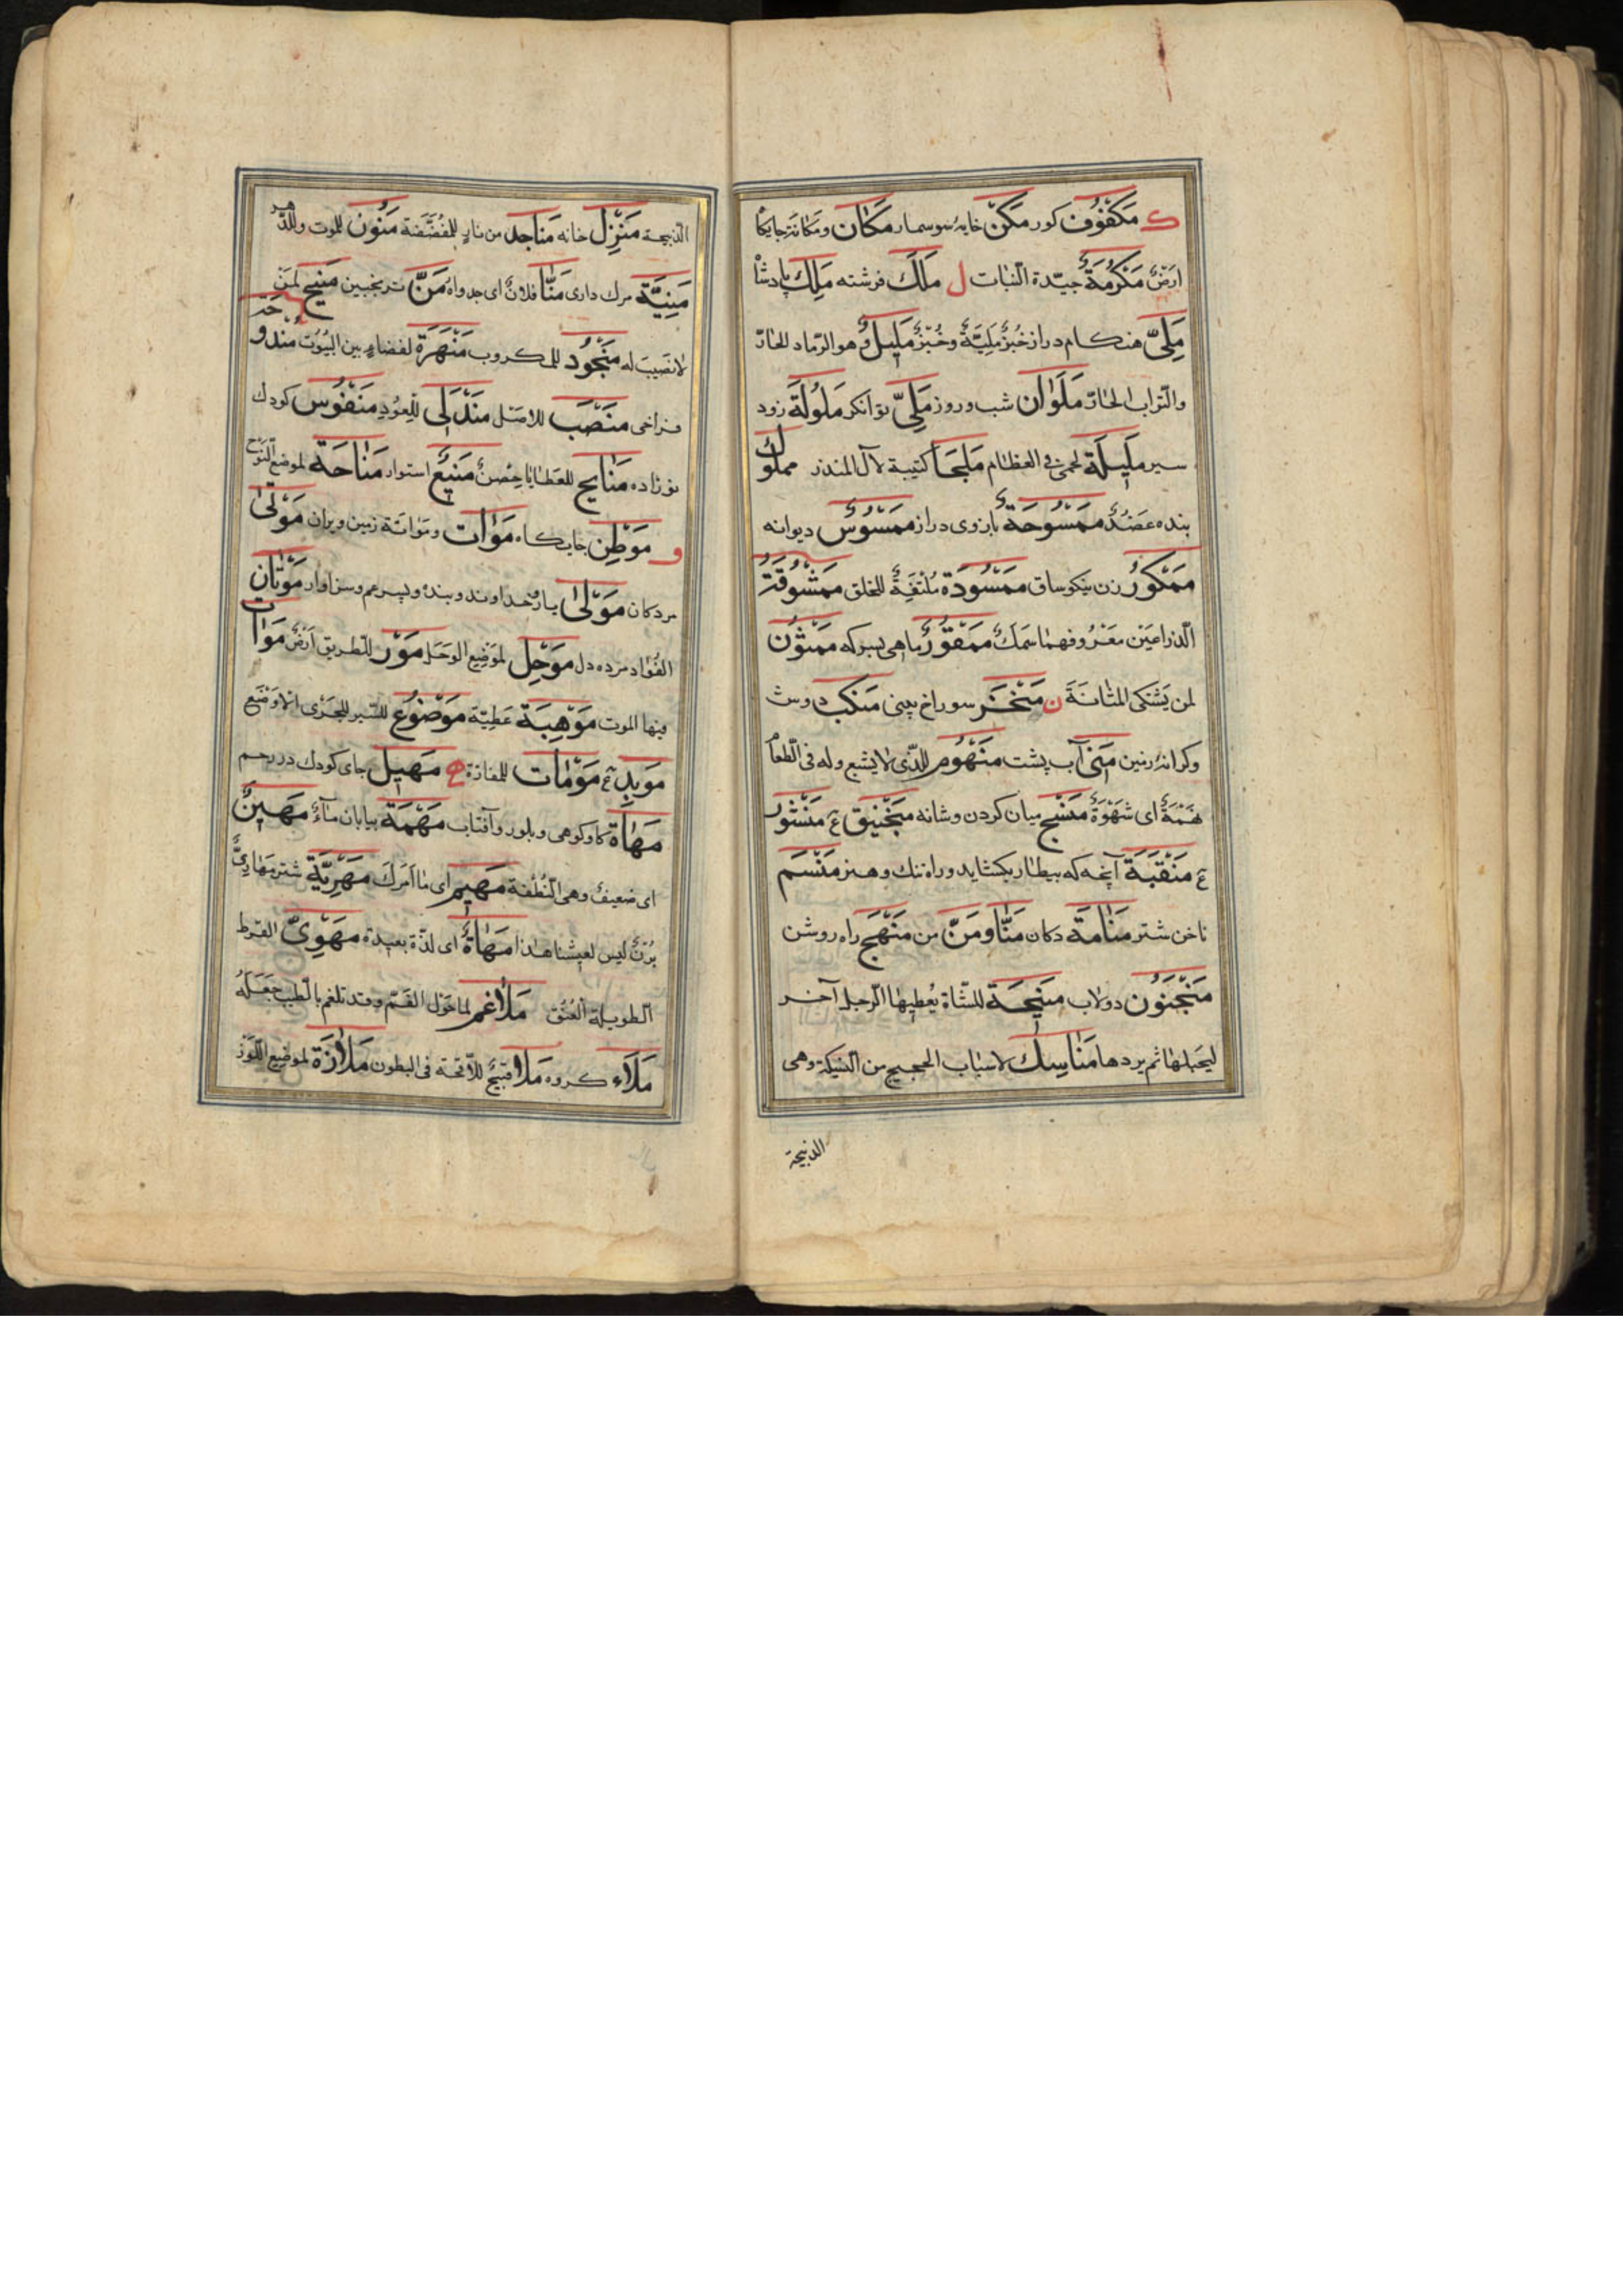 ك مَكْفُوف كور مَكْن خايهٔ سوسمار مَكَان ومَكَانَة جايكا
اَرْضٌ مَكْرُمَةٌ جيّدة النبات ل مَلَك فرشته مَلِك پادشا
مَلِىّ هنكام دراز خُبْزُ مَلِيَّةٌ وخُبْزٌ مَلِيلٌ وهو الرّماد للحارّ
والتراب الحارّ مَلَوَان شب وروز مَلِىّ توانكر مَلُولَة زود
سير مَلِيلَة لحمى فى العظام مَلْحَا كتيبة لآل المنذر مملوك
بنده عَضُدٌ مَمْسُوحَةٌ بازوى دراز مَمْسُوسٌ ديوانه
مَمْكُورٌ زن نيكو ساق مَمْسُودَة مُلْتَفِةٌ للخلق مَمْشُوقَةٌ
الذراعين مَعْرُوفهما سَمَكٌ مَمْقُورٌ ماهى بسركه مَمْثُون
لمن يَشتكى المثانَةَ ن مَنْخَر سوراخ بينى مَنْكِب دوش
وكرانهٔ زمين مَنِى آب پشت مَنْهُوم للذى لا يشبع وله فى الطعا
نَهْمَةٌ اى شَهْوَةٌ مَنْسَج ميان كردن وشانه مَنْجَنِيق ع مَنْشُور
ع مَنْقَبَة آنچه كه بيطار بكشايد وراه تنك وهنر مَنْسَم
ناخن شتر مَنَامَة دكان مَنًّا ومَنّ من مَنْهَج راه روشن
مَنْجَنُون دولاب مَنِيحَة للشّاة يُعطيها الرجل آخر
ليحلبها ثم يردها مَنَاسِك لاسباب الحجيج من النسيكة وهى
الذبيحة
الذبيحة مَنْزِل خانه مَنَاجِد من نار للمفضّضة مَنُون للموت وللدهر
مَنِيَّة مرك دارى مَنَّا فلانٌ اى جدواهُ مَنّ ترنجبين مَنِيح لمن
لا نصيب له مَنْجُود للمكروب مَنْهَرَة لفضاءٍ بين البيُوت مندوحة
فراخى مَنْصَب للاصل مَنْدَلِى للعُودِ مَنْفُوس كودك
نوزاده مَنَايح للعَطايا حِصنٌ مَنِيعٌ استوار مَنَاحَة لموضع النَوْح
و مَوْطِن جايكاه مَوَات ومَوَاتَة زمين ويران مَوْلَى
مردكان مَوْلَى يار وخداوند وبنده وپسر عم وسزاوار مَوْتَان
الفُؤاد مرده دل مَوْحِل لموضِع الوحَل مَوْر للطريق اَرضٌ مَوَات
فيها الموت مَوْهِبَة عَطِيّة مَوْضُوع للسّير للجَرى الاوضع
مَوبِد ع مَوْمَات للمفازة ه مَهِيل جاى كودك در رحم
مَهَاة كاوكوهى وبلور وآفتاب مَهْمَة بيابان مآءٌ مَهِينٌ
اى ضعيفٌ وهى النُطفة مَهْيَم اى ما امَركَ مَهْرِيَّة شتر مَهَارِىُّ
ليس لعيشنا هذا مَهَاةٌ اى لذّة بعيدة مَهْوِىّ القرط
الطويلة العُنُق مَلَاغِم لما حَوْل الفَم وقد تلغم بالطيب جَعَلَهُ
مَلَاء كروه مَلَا قبيحٌ للاّ فى البطون مَلَازَة لموضع اللَوز